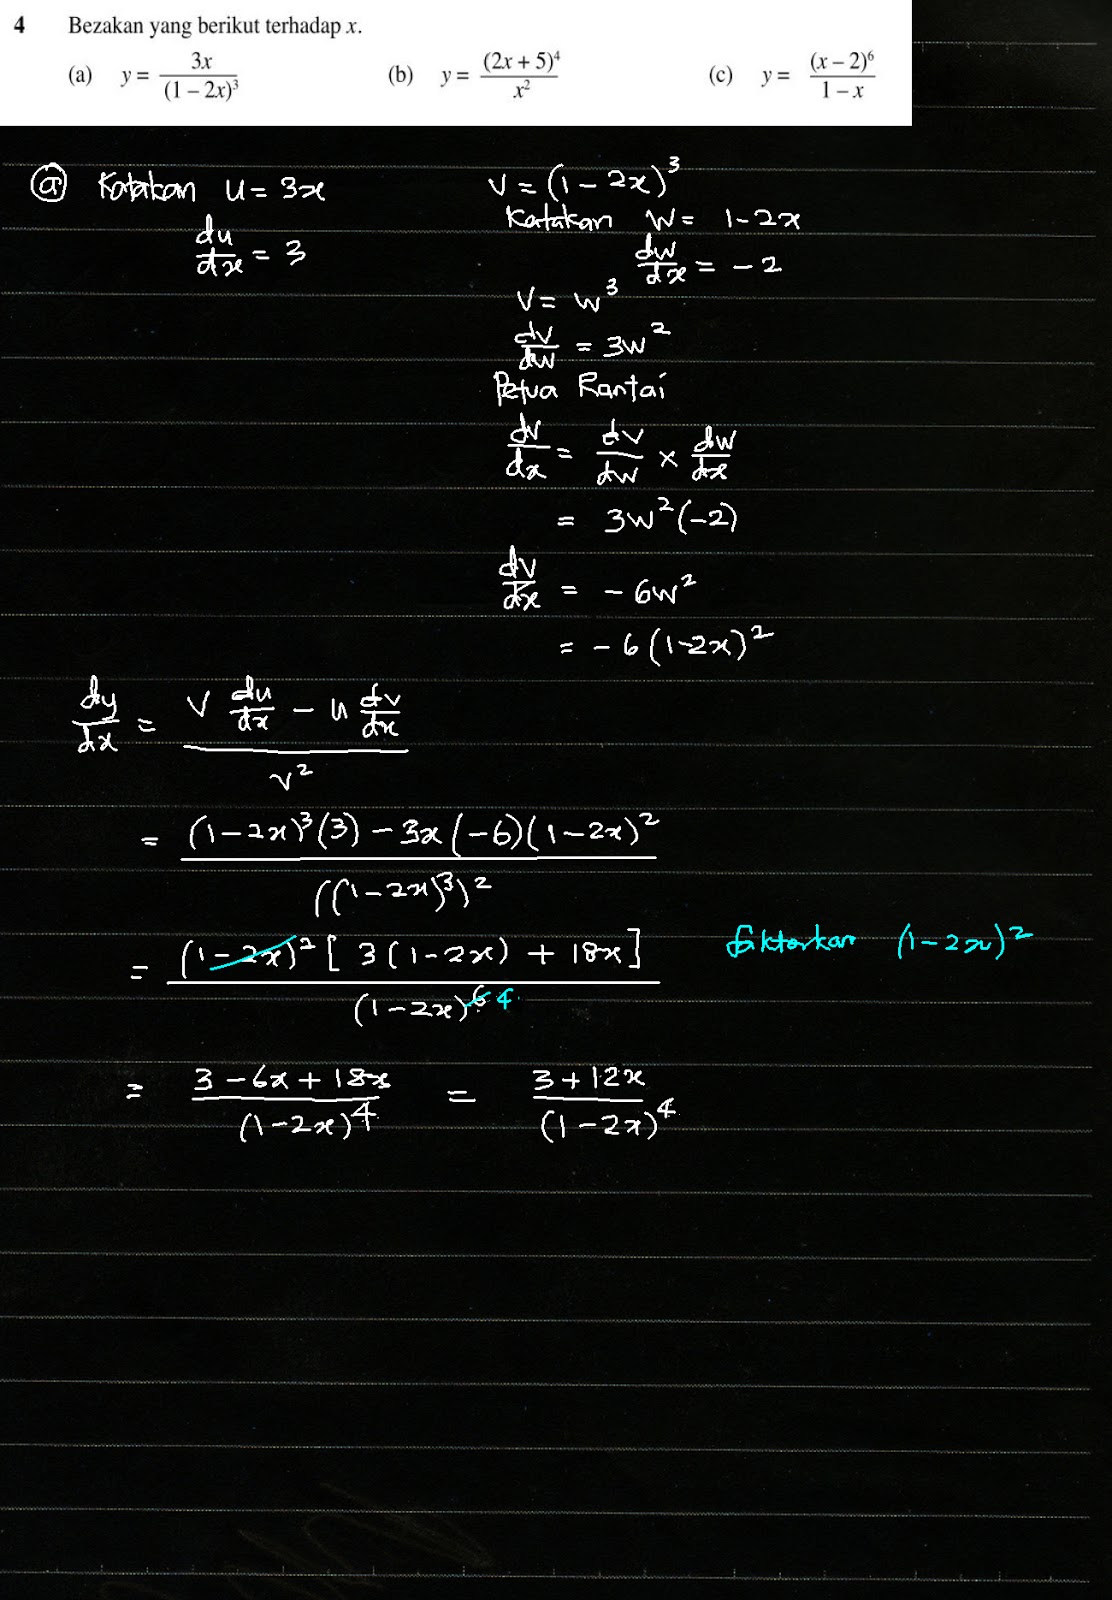 4 Bezakan yang berikut terhadap x.
(a) y = 3x/(1 – 2x)³ (b) y = (2x + 5)⁴/x² (c) y = (x – 2)⁶/(1 – x)
ⓐ Katakan u = 3x
du/dx = 3
v = (1 - 2x)³
Katakan w = 1-2x
dw/dx = -2
v = w³
dv/dw = 3w²
Petua Rantai
dv/dx = dv/dw × dw/dx
= 3w²(-2)
dv/dx = - 6w²
= - 6(1-2x)²
dy/dx = (v du/dx - u dv/dx)/v²
= ((1-2x)³(3) - 3x(-6)(1-2x)²)/((1-2x)³)²
= (1-2x)²[3(1-2x) + 18x]/(1-2x)⁶ 4 faktorkan (1-2x)²
= (3 - 6x + 18x)/(1-2x)⁴ = (3 + 12x)/(1-2x)⁴